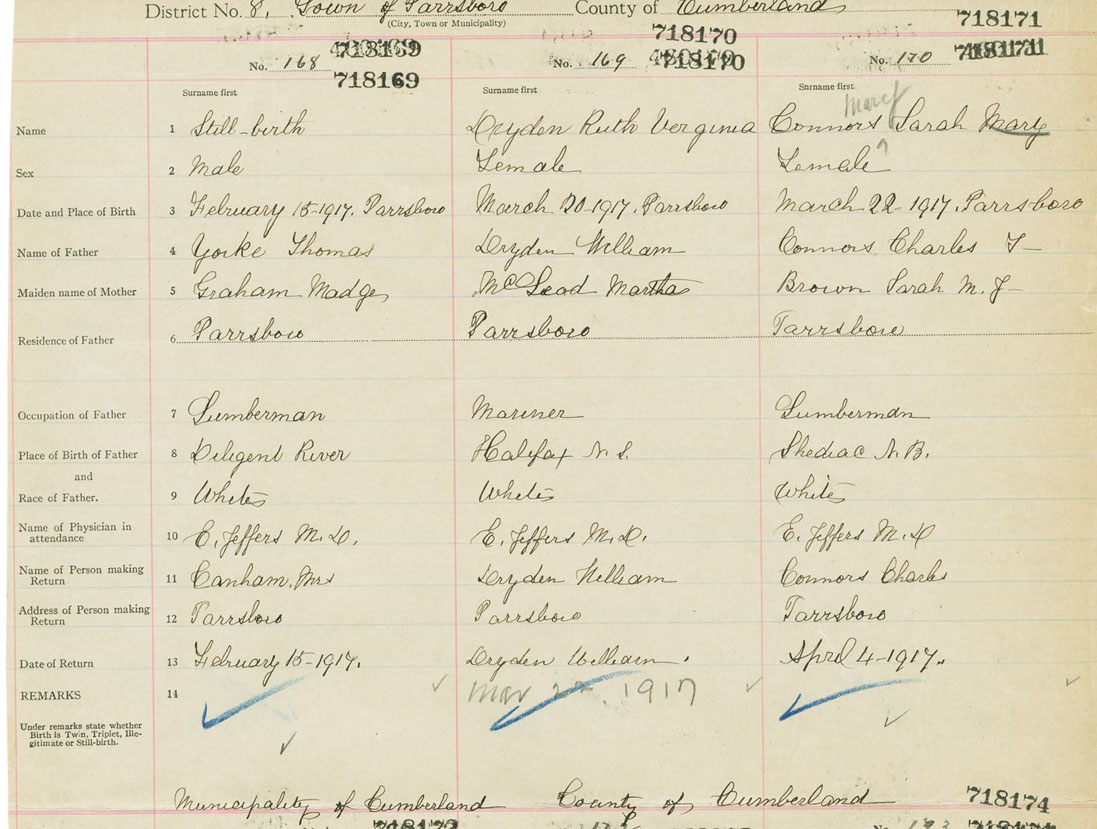 District No. 8, Town of Parrsboro County of Cumberland
(City, Town or Municipality)
718171
718170
No. 168 718169 No. 169 718170 No. 170
718169
Surname first Surname first Surname first
Name 1 Still-birth Dryden Ruth Verginia Connors Sarah Mary
Sex 2 Male Female Female
Date and Place of Birth 3 February 15-1917. Parrsboro March 20-1917. Parrsboro March 22-1917. Parrsboro
Name of Father 4 Yorke Thomas Dryden William Connors Charles
Maiden name of Mother 5 Graham Madge McLead Martha Brown Sarah M. J
Residence of Father 6 Parrsboro Parrsboro Parrsboro
Occupation of Father 7 Lumberman Mariner Lumberman
Place of Birth of Father 8 Diligent River Halifax N. S. Shediac N. B.
and
Race of Father. 9 White White White
Name of Physician in
attendance 10 E. Jeffers M. D. E. Jeffers M. D. E. Jeffers M. D
Name of Person making
Return 11 Canham. Mrs Dryden William Connors Charles
Address of Person making
Return 12 Parrsboro Parrsboro Parrsboro
Date of Return 13 February 15-1917. Dryden William. April 4-1917.
REMARKS 14 Mar 1917
Under remarks state whether
Birth is Twin, Triplet, Ille-
gitimate or Still-birth.
Municipality of Cumberland County of Cumberland 718174